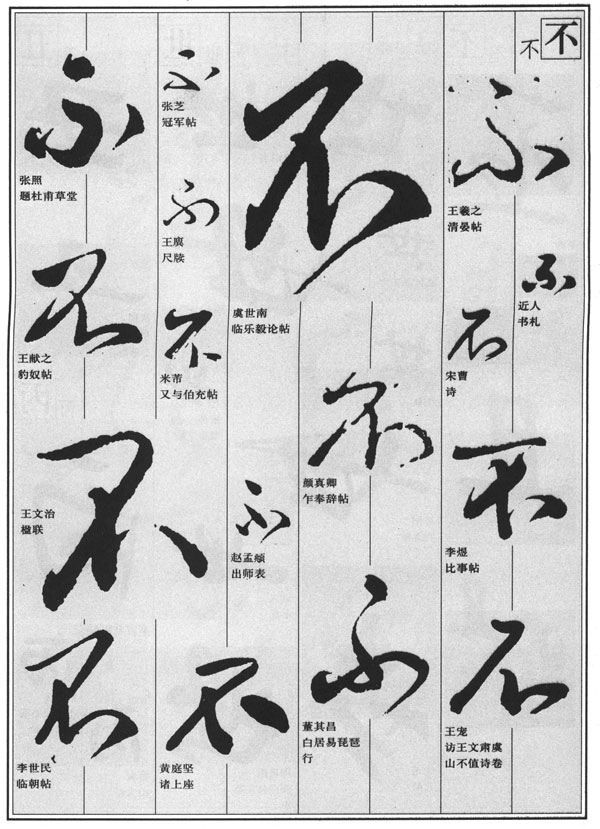 不
不
不
王羲之
清晏帖
不
近人
书札
不
宋曹
诗
不
李煜
比事帖
不
王宠
访王文肃虞
山不值诗卷
不
虞世南
临乐毅论帖
不
颜真卿
乍奉辞帖
不
赵孟頫
出师表
不
董其昌
白居易琵琶
行
不
张芝
冠军帖
不
王廙
尺牍
不
米芾
又与伯充帖
不
黄庭坚
诸上座
不
张照
题杜甫草堂
不
王献之
豹奴帖
不
王文治
楹联
不
李世民
临朝帖